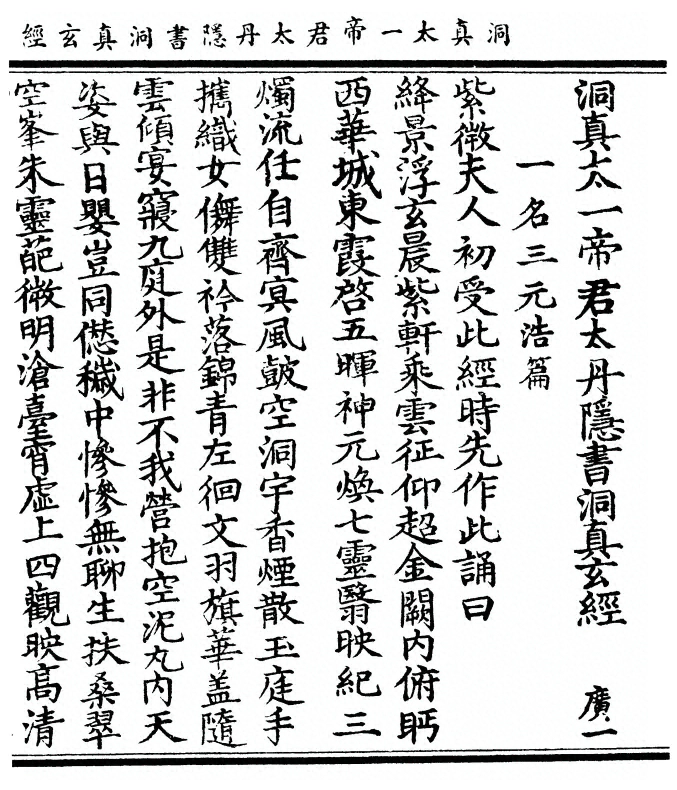 洞真太一帝君太丹隱書洞真玄經
洞真太一帝君太丹隱書洞真玄經 廣一
一名三元浩篇
紫微夫人初受此經時先作此誦曰
絳景浮玄晨紫軒乘雲征仰超金闕内俯眄
西華城東霞啓五暉神元煥七靈翳映紀三
燭流任自齊冥風鼓空洞宇香煙散玉庭手
攜織女儛雙衿落錦青左徊文羽旗華盖隨
雲傾宴寢九庭外是非不我營抱空泥丸内天
姿與日嬰豈同僁穢中慘慘無聊生扶桑翠
空峯朱靈葩微明滄臺霄虛上四觀映高清